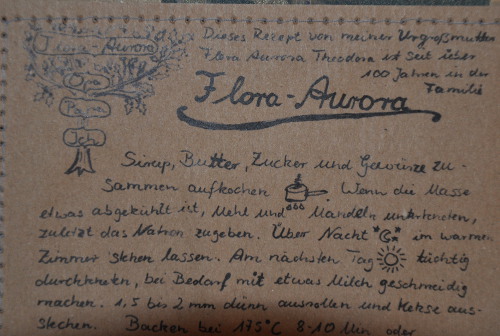 Flora-Aurora
Opa
Papa
Ich
Dieses Rezept von meiner Urgroßmutter
Flora Aurora Theodora ist seit über
100 Jahren in der
Familie
Flora-Aurora
Sirup, Butter, Zucker und Gewürze zu-
sammen aufkochen. Wenn die Masse
etwas abgekühlt ist, Mehl und Mandeln unterkneten,
zuletzt das Natron zugeben. Über Nacht im warmen
Zimmer stehen lassen. Am nächsten Tag tüchtig
durchkneten, bei Bedarf mit etwas Milch geschmeidig
machen. 1,5 bis 2 mm dünn ausrollen und Kekse aus-
stechen. Backen bei 175°C 8-10 Min oder